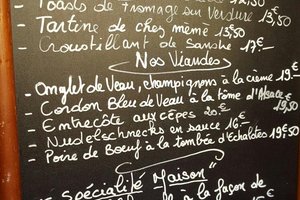 Toasts de fromage sur Verdure 13€50
- Tartine de chez mémé 13,50
- Croustillant de Sandre 17€
Nos Viandes
- Onglet de Veau, champignons à la crème 19€
- Cordon Bleu de Veau à la tôme d'Alsace 19,50
- Entrecôte aux cèpes 20.€
- Nudelschnecks en sauce 16.-
- Poire de Boeuf à la tombée d'Echalotes 19€50
"Spécialité Maison"
à la façon de